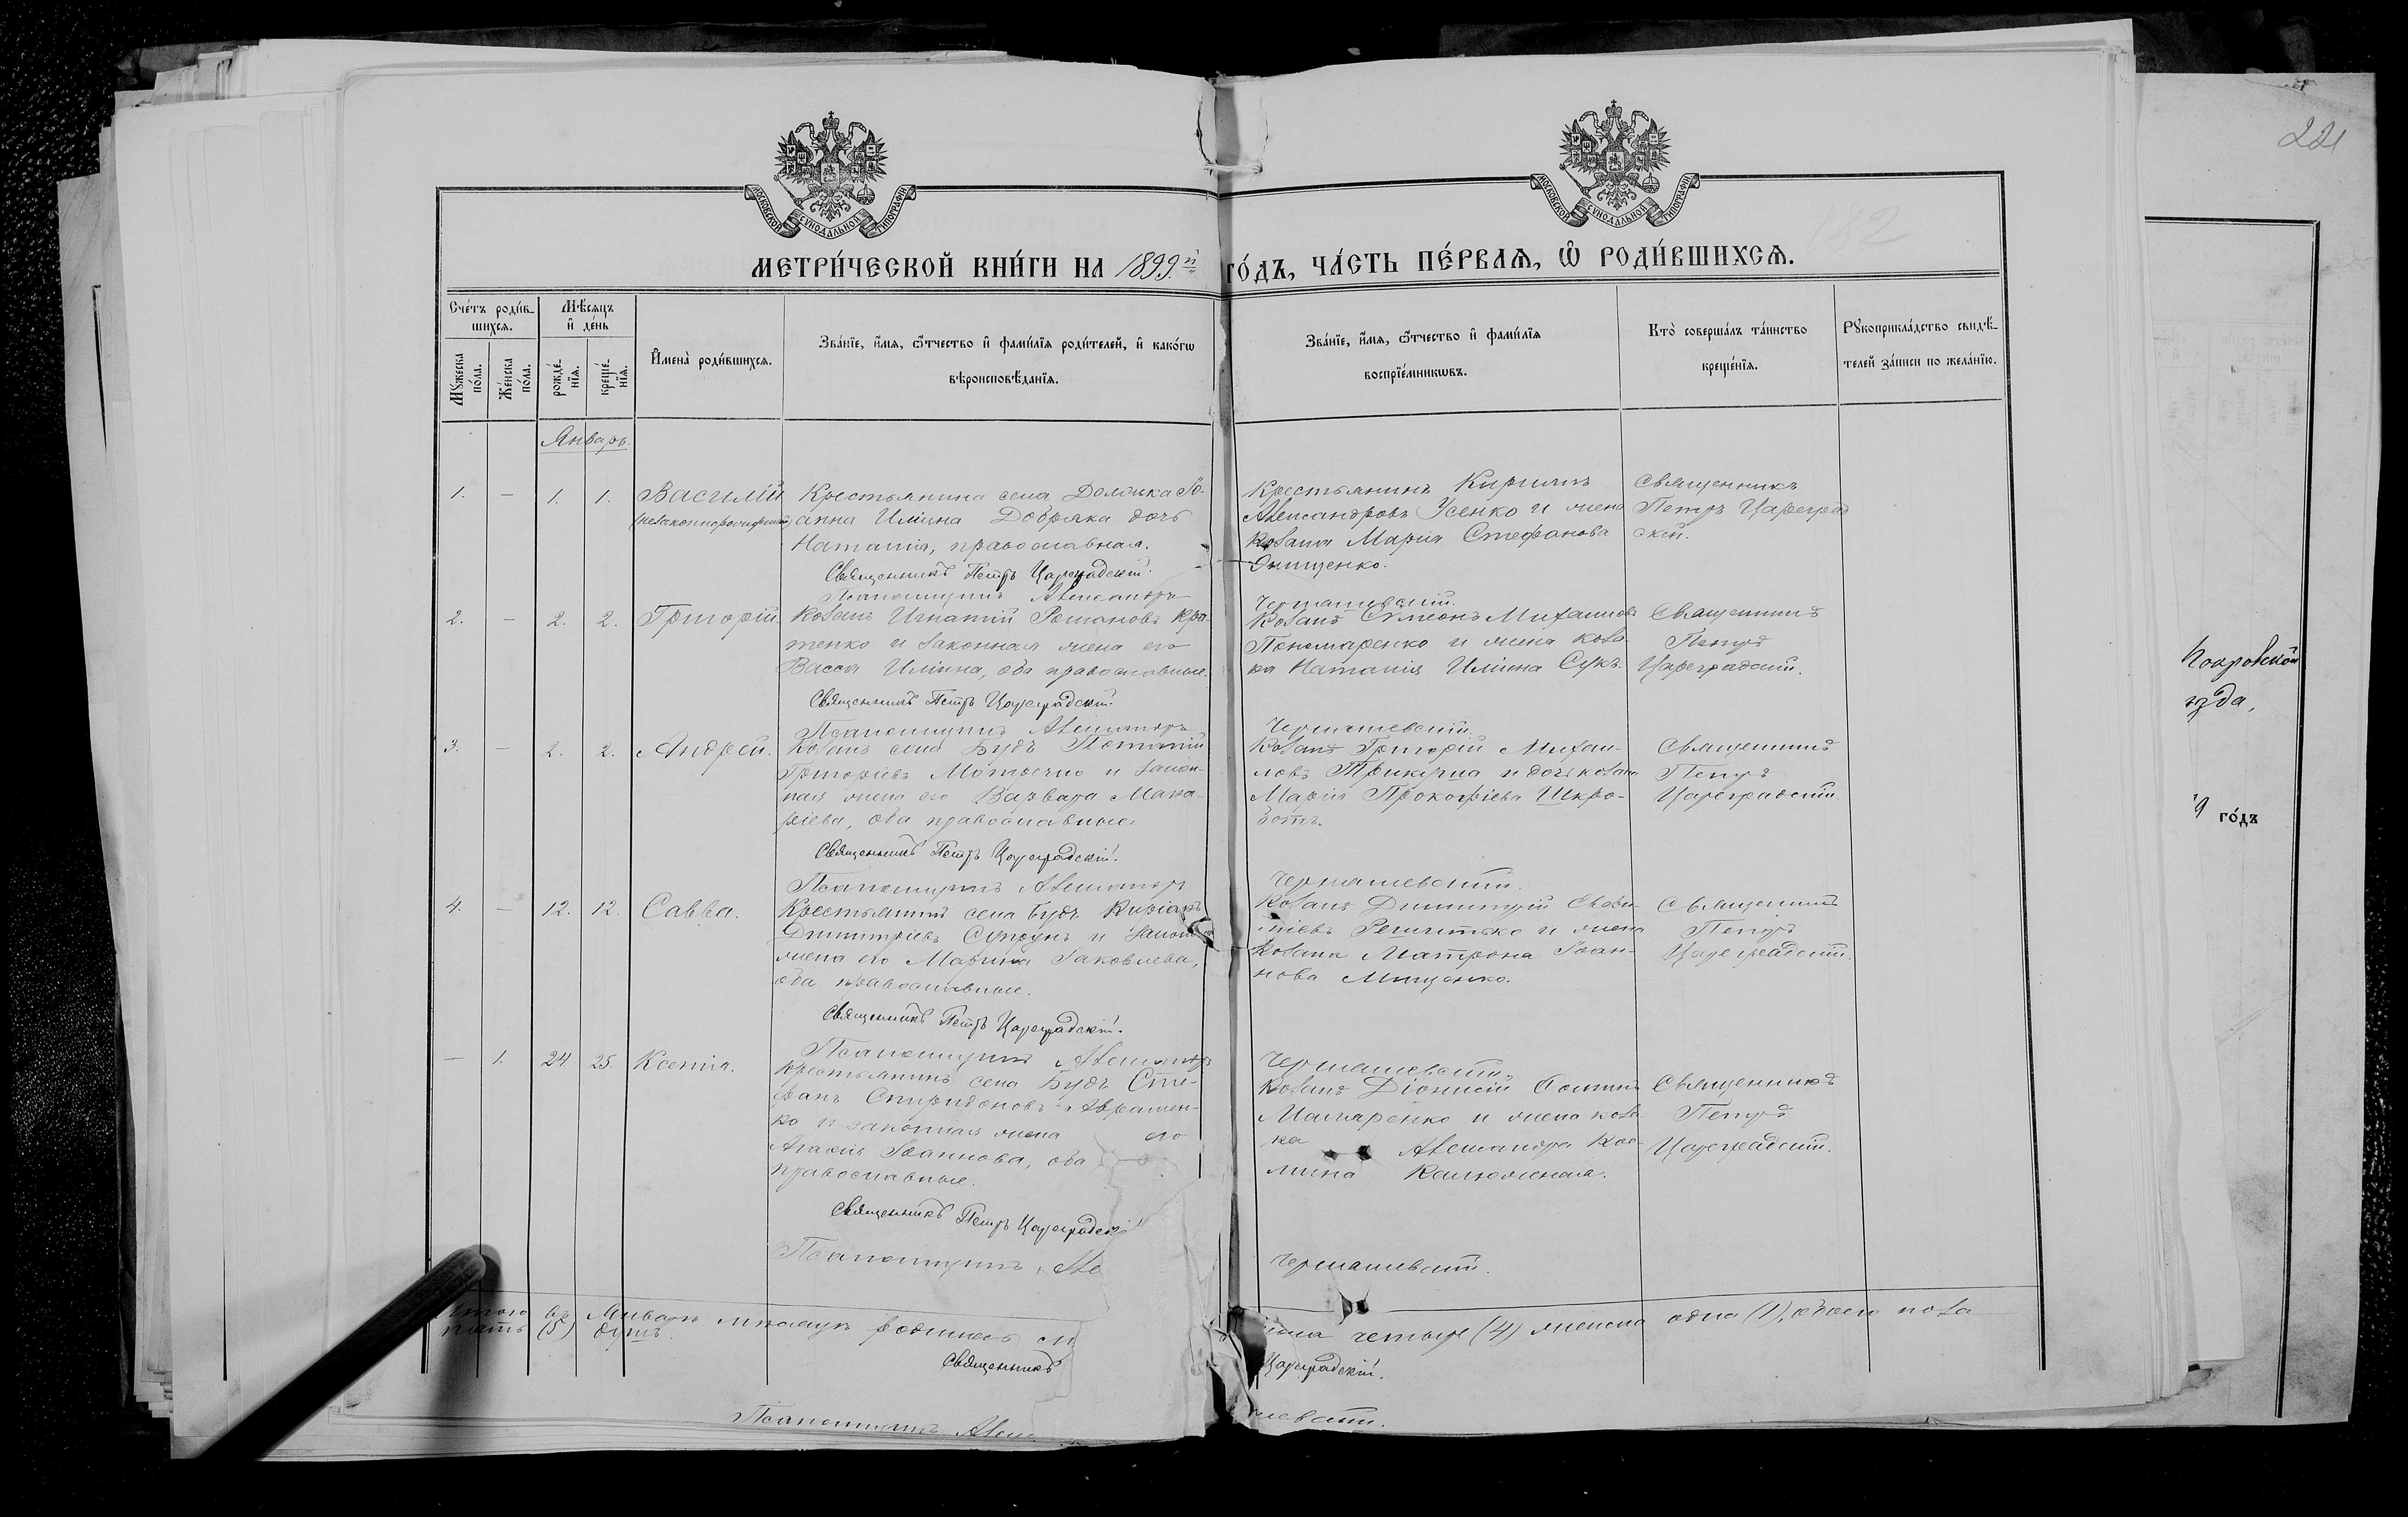 221
МОСКОВСКОЙ СѴНОДАЛЬНОЙ ТИПОГРАФІИ
МОСКОВСКОЙ СѴНОДАЛЬНОЙ ТИПОГРАФІИ
182
МЕТРИ́ЧЕСКОЙ КНИ́ГИ НА 1899й ГО́ДЪ, ЧА́СТЬ ПЕ́РВАѦ, Ѽ РОДИ́ВШИХСѦ.
Сче́тъ роди́в-
шихсѧ.
Мѣ́сѧцъ
и҆ де́нь
Мꙋ́жеска
по́ла.
Же́нска
по́ла.
рожде́-
нїѧ.
креще́-
нїѧ.
И҆мена̀ роди́вшихсѧ.
Зва́нїе, и҆́мѧ, ѻ҆́тчество и҆ фами́лїѧ роди́телей, и҆ како́гѡ
вѣроисповѣ́данїѧ.
Зва́нїе, и҆́мѧ, ѻ҆́тчество и҆ фами́лїѧ
воспрїе́мникѡвъ.
Кто̀ соверша́лъ та́инство
креще́нїѧ.
Рꙋкоприкла́дство свидѣ́-
телей за́писи по жела́нїю.
Январь.
1. — 1. 1. Василій
(незаконнорожденный)
Крестьянина села Долинка Іо-
анна Иліина Добряка дочь
Наталія, православная.
Священникъ Петръ Цареградскій.
Псаломщикъ Александръ Чернашевскій.
Крестьянинъ Кириллъ
Александровъ Усенко и жена
козака Марія Стефанова
Онищенко.
Священникъ
Петръ Цареград
скій.
2. — 2. 2. Григорій.
Козакъ Игнатій Романовъ Кра-
тенко и законная жена его
Васса Иліина, оба православные.
Священникъ Петръ Цареградскій.
Псаломщикъ Александръ Чернашевскій.
Козакъ Симеонъ Михаиловъ
Пономаренко и жена коза
ка Наталія Иліина Сукъ.
Священникъ
Петръ
Цареградскій.
3. — 2. 2. Андрей.
Козакъ села Будъ Потапій
Григоріевъ и закон-
ная жена его Варвара Мака-
ріева, оба православные.
Священникъ Петръ Цареградскій.
Псаломщикъ Александръ Чернашевскій.
Козакъ Григорій Михаи-
ловъ и дочь козака
Марія Прокофіева Шкро-
ботъ.
Священникъ
Петръ
Цареградскій.
4. — 12. 12. Савва.
Крестьянинъ села Будъ Киріакъ
Димитріевъ Супрунъ и законная
жена его Марина Іаковлева,
оба православные.
Священникъ Петръ Цареградскій.
Псаломщикъ Александръ Чернашевскій.
Козакъ Димитрій
и жена
козака Матрона Іоан-
нова Мищенко.
Священникъ
Петръ
Цареградскій.
— 1. 24 25. Ксенія.
Крестьянинъ села Будъ Сте-
фанъ Спиридоновъ Аврамен-
ко и законная жена его
Агафія Іоаннова, оба
православные.
Священникъ Петръ Цареградскій
Псаломщикъ Але Чернашевскій.
Козакъ Діонисій Ѳоминъ
и жена коза
ка Александра Кос-
мина
Священникъ
Петръ
Цареградскій.
Итого въ Январѣ мѣсяцѣ родилось м четыре (4) женска одна (1), обоего пола
пять (5) душъ.
Священникъ Цареградскій.
Псаломщикъ Алек шевскій.
Покровской
ѣзда,
9 го́дъ